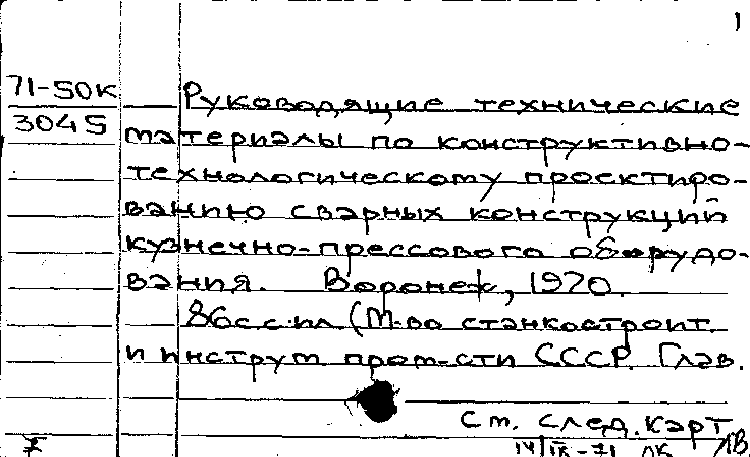 1
71-50К Руководящие технические
3045 материалы по конструктивно-
технологическому проектиро-
ванию сварных конструкций
кузнечно-прессового оборудо-
вания. Воронеж, 1970.
86с. с ил. (М-во станкостроит.
и инструм пром-сти СССР. Глав.
См. след. карт
14/IX-71